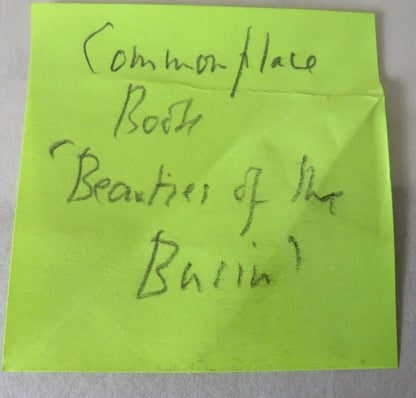 Commonplace
Book
'Beauties of the
Burin'